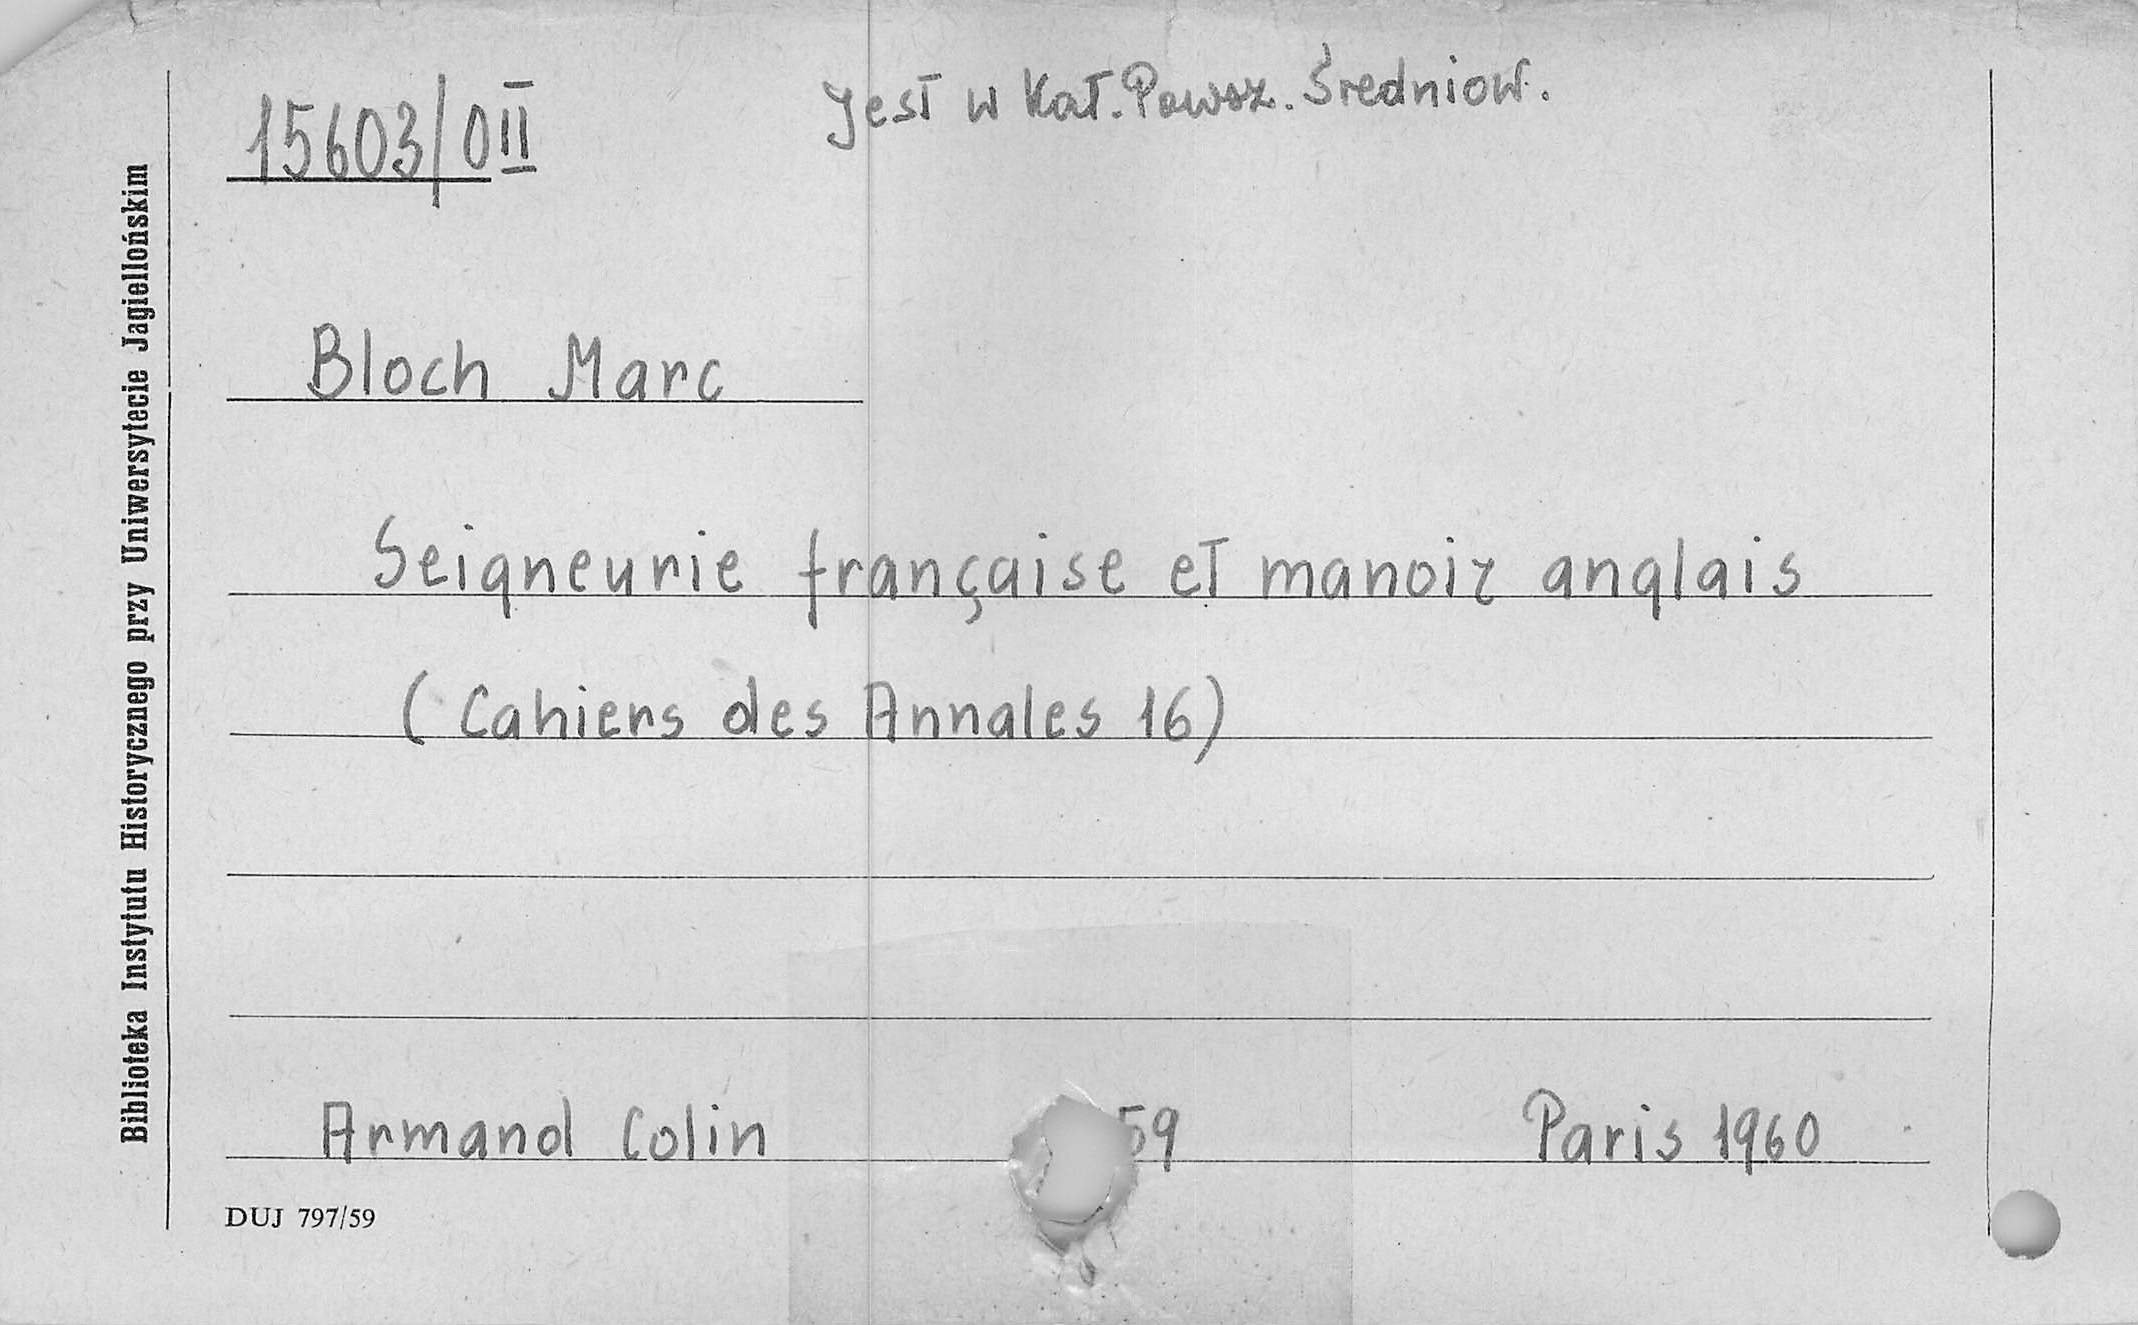 15603/0 II
Jest w Kat. Powsz. Średniow.
Bloch Marc
Seigneurie française et manoir anglais
(Cahiers des Annales 16)
Armand Colin 59 Paris 1960
DUJ 797/59
Biblioteka Instytutu Historycznego przy Uniwersytecie Jagiellońskim